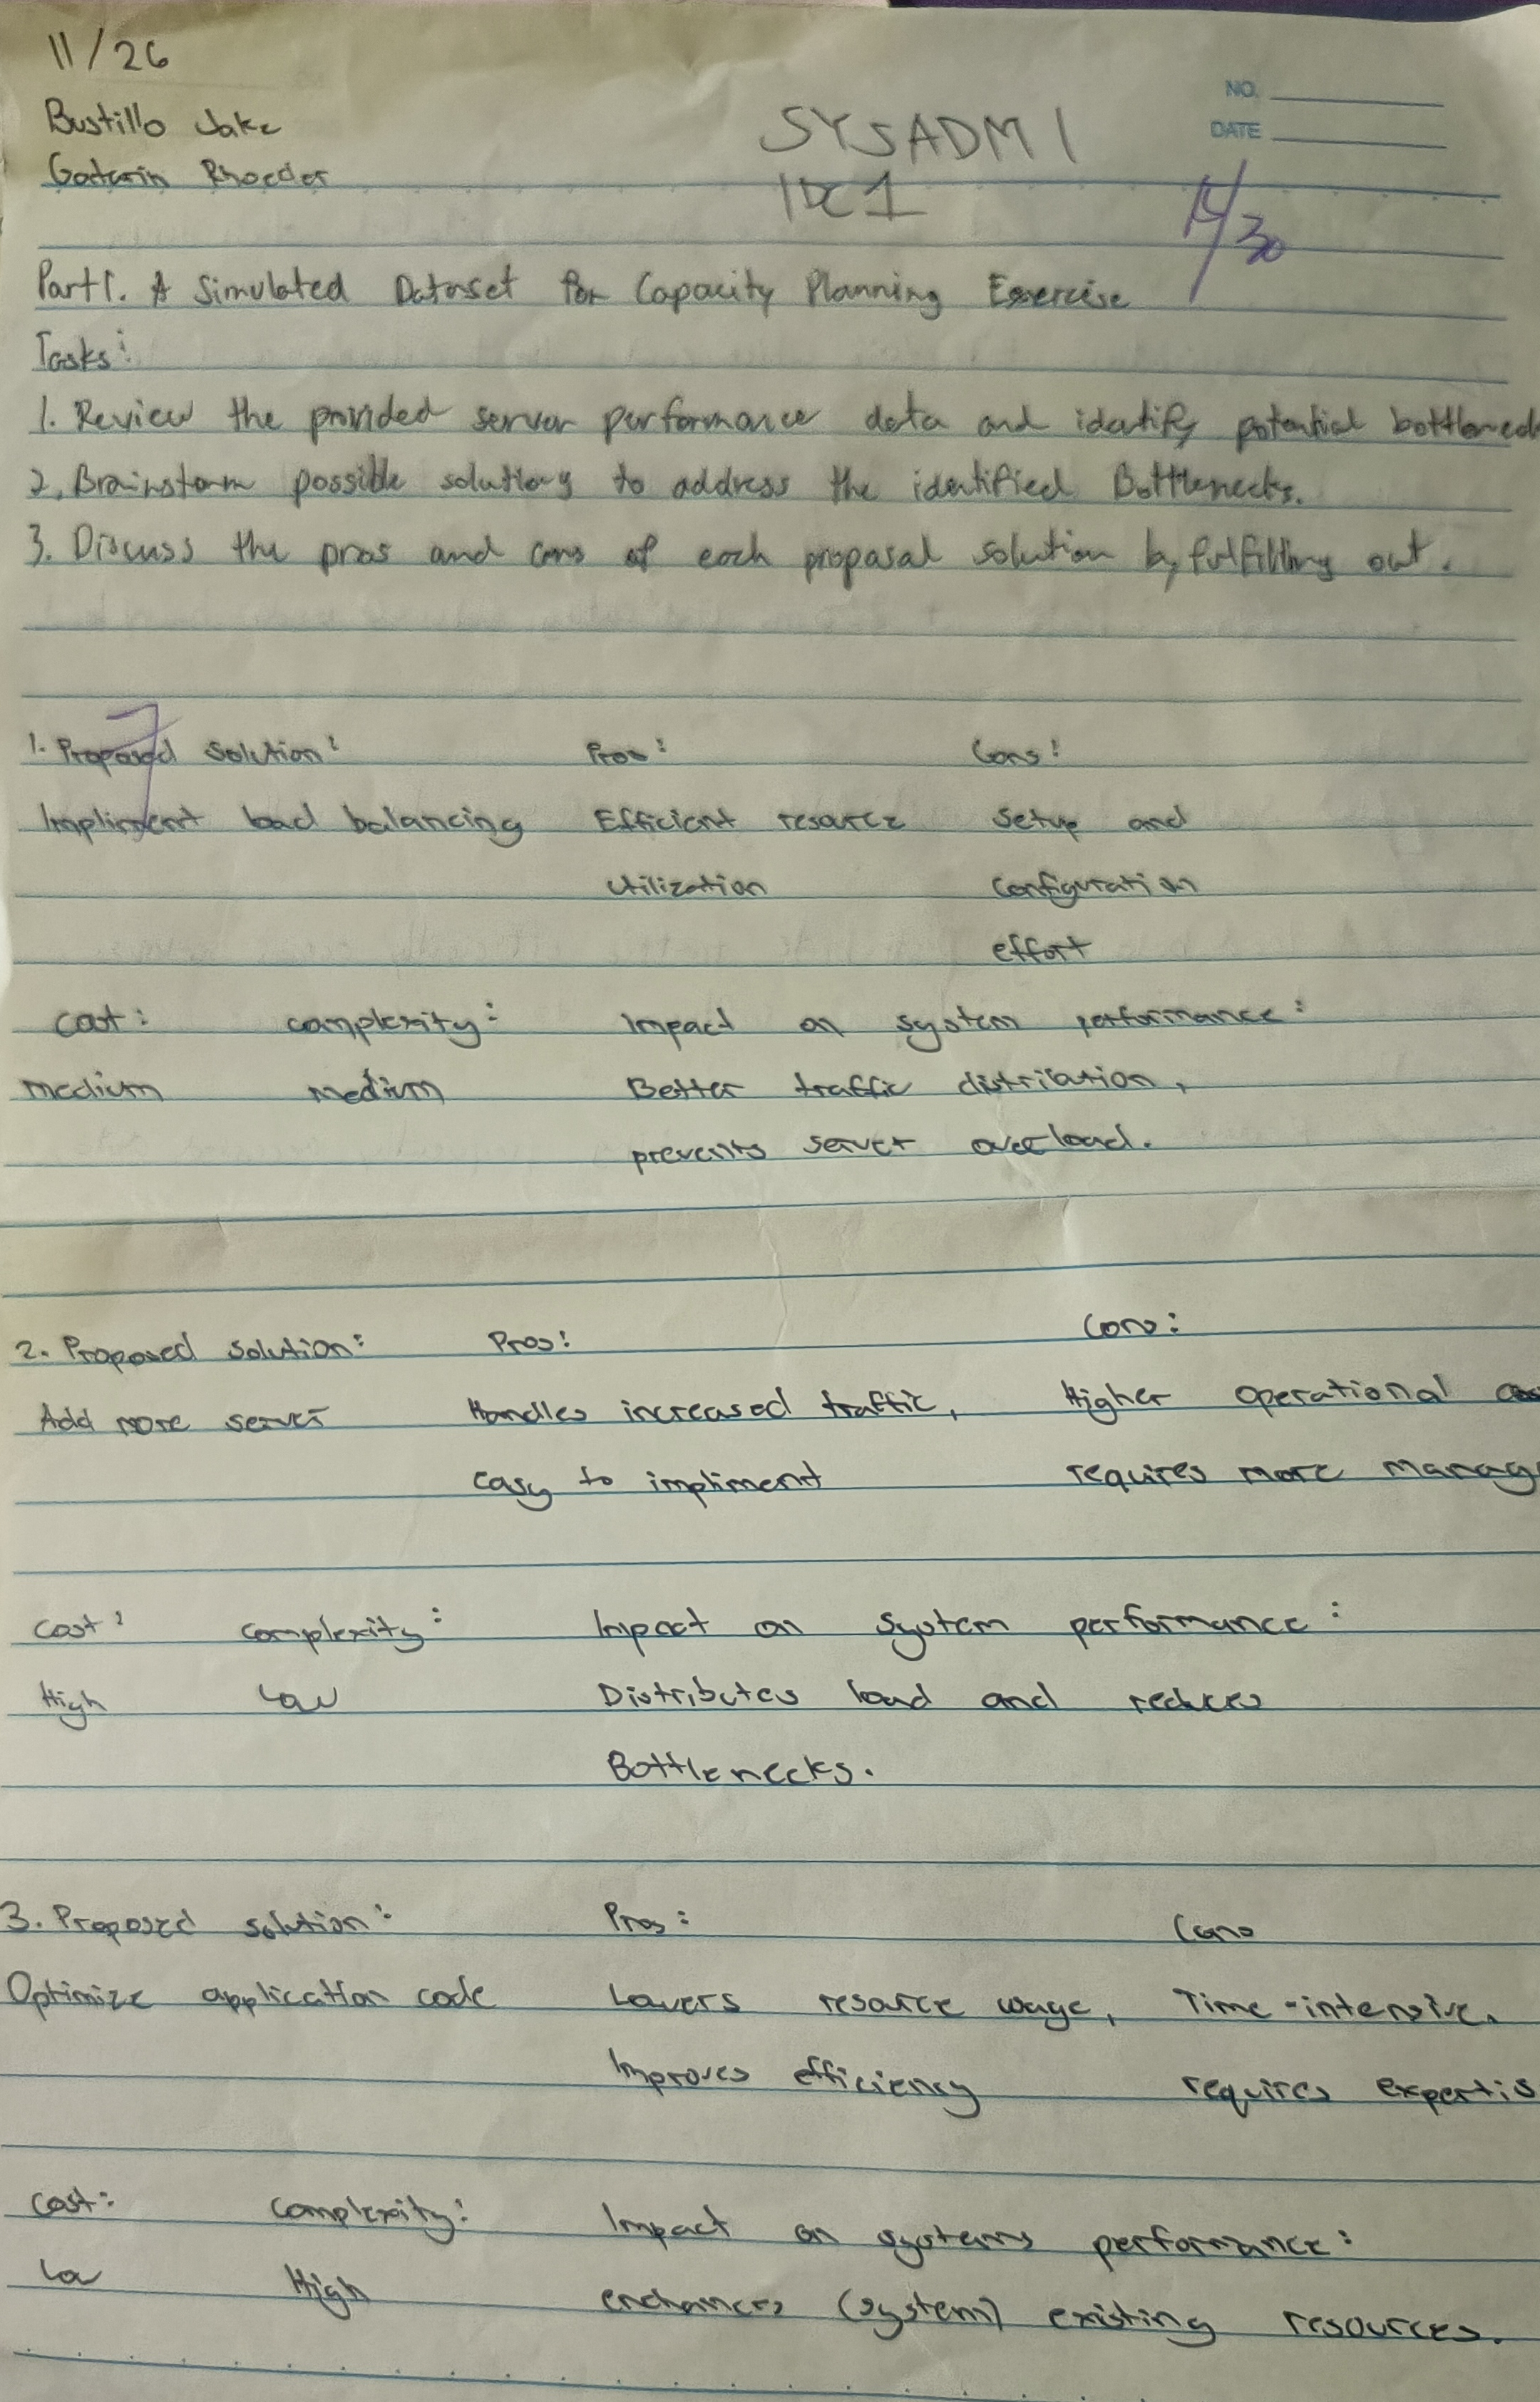 11/26
Bustillo Jake
NO.
SYSADM 1
DATE
Rhoeder
/30
Part 1. A Simulated Dataset for Capacity Planning Exercise
Tasks:
1. Review the provided server performance data and identify potential
2. Brainstorm possible solutions to address the identified Bottlenecks.
3. Discuss the pros and cons of each proposal solution by fulfilling out.
7
1. Proposed Solution: Pros: Cons:
Impliment load balancing Efficient resource Setup and
utilization configuration
effort
cost: complexity: Impact on system performance:
medium medium Better traffic distribation,
prevents server overload.
2. Proposed solution: Pros: Cons:
Add more server Handles increased traffic, Higher operational
easy to impliment requires more
cost: complexity: Impact on system performance:
High Low Distributes load and reduces
Bottlenecks.
3. Proposed solution: Pros: Cons
Optimize application code Lowers resource usage, Time-intensive,
Improves efficiency requires
cost: complexity: Impact on systems performance:
Low High enchances (system) existing resources.